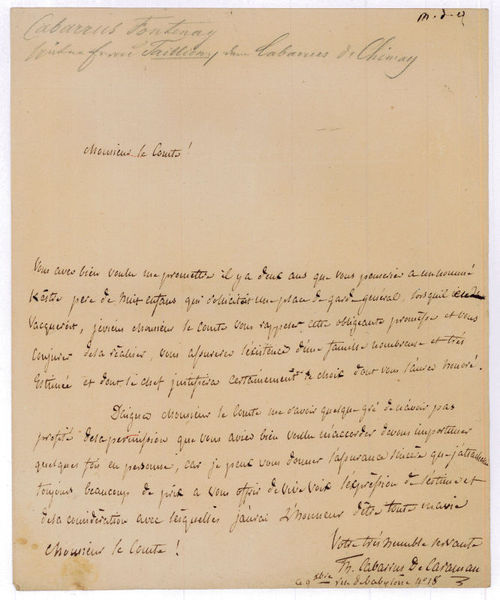 Cabarrus Fontenay
Cabarrus de Chimay
Monsieur le Comte !
Vous avez bien voulu me promettre il y a deux ans que vous penseriez a un nommé
père de huit enfans qui sollicitait une place de garde général, lorsqu'il
vacqueroit, je viens monsieur le Comte vous rappeler cette obligeante promesse et vous
conjurer de la réaliser, vous assurerez l'existence d'une famille nombreuse et très
Estimée et dont le chef justifiera certainement le choix dont vous l'aurez honoré.
Daignez Monsieur le Comte me savoir quelque gré de n'avoir pas
profité de la permission que vous aviez bien voulu m'accorder de vous importuner
quelques fois en personne, car je peux vous donner l'assurance sincère que j'attacherai
toujours beaucoup de prix a vous offrir de vive voix l'expression de l'estime et
de la considération avec lesquelles j'aurai l'honneur d'être toute ma vie
Monsieur le Comte !
Votre très humble servante
Th. Cabarrus De Caraman
ce 9 xbre rue de Babylone n° 18